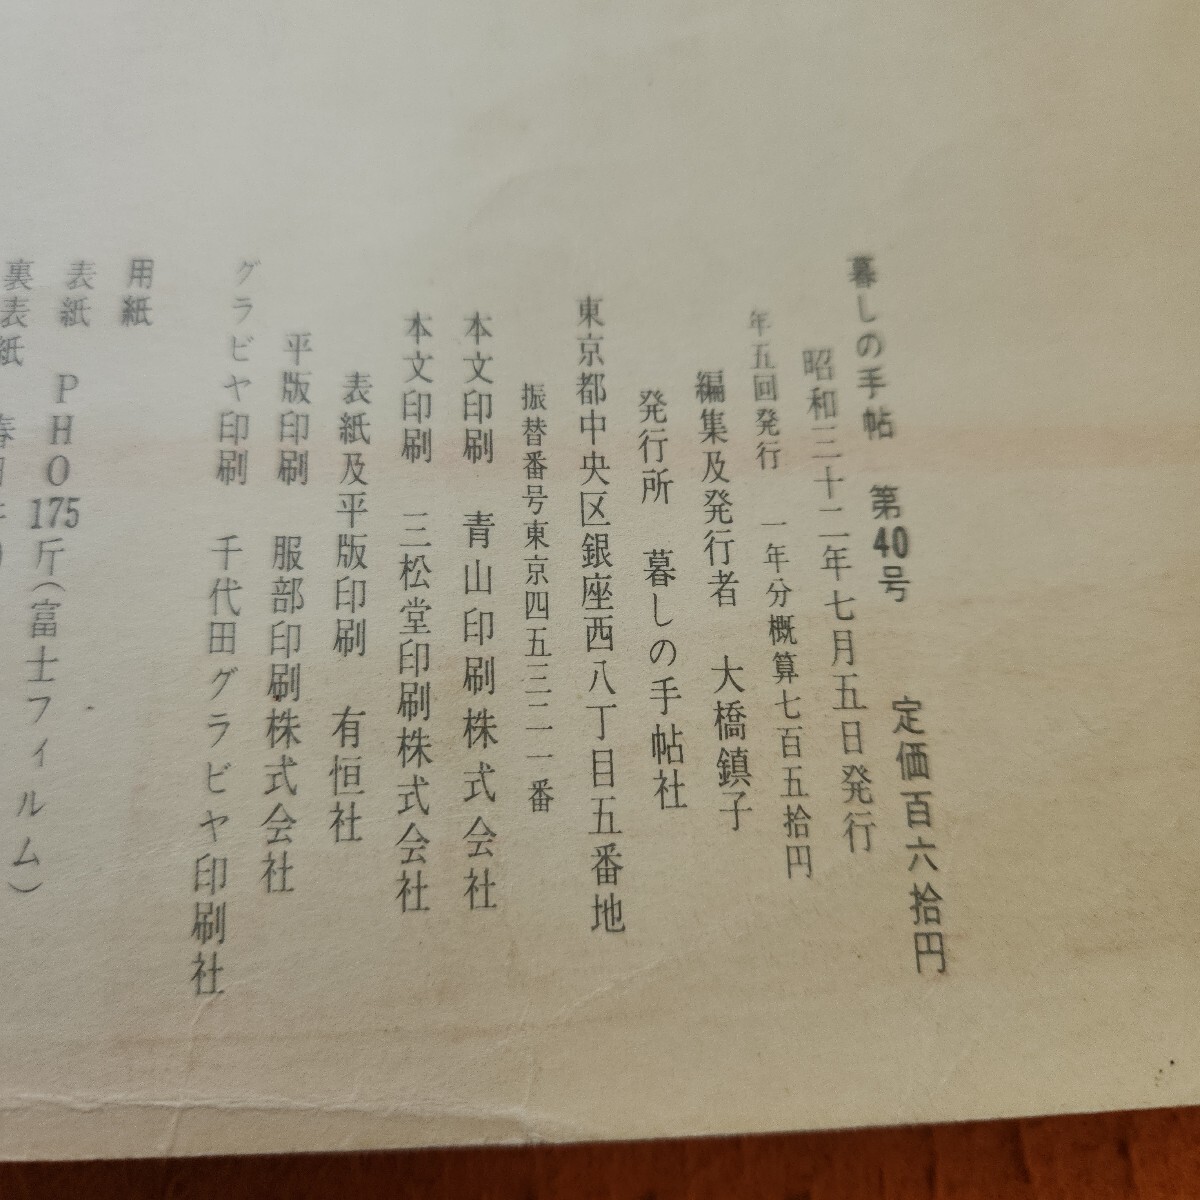 暮しの手帖 第40号 定価百六拾円
昭和三十二年七月五日発行
年五回発行 一年分概算七百五拾円
編集及発行者 大橋鎮子
発行所 暮しの手帖社
東京都中央区銀座西八丁目五番地
振替番号東京四五三二一番
本文印刷 青山印刷株式会社
本文印刷 三松堂印刷株式会社
表紙及平版印刷 有恒社
平版印刷 服部印刷株式会社
グラビヤ印刷 千代田グラビヤ印刷社
用紙
表紙 PHO175斤(富士フィルム)
裏表紙